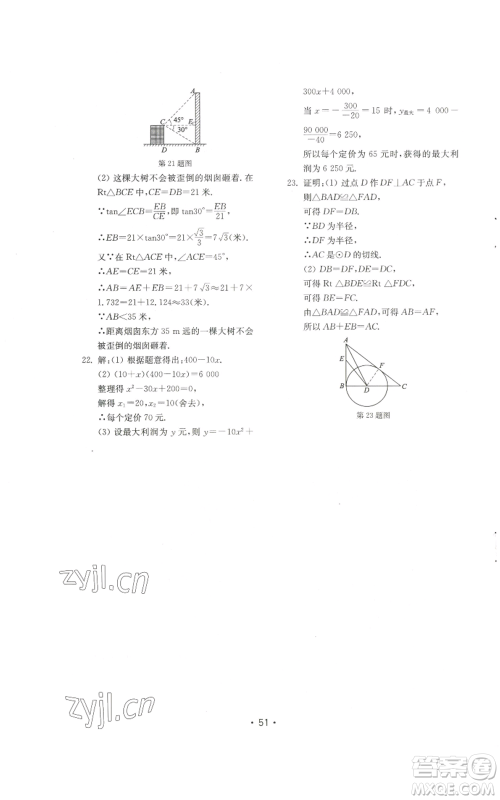 A
C
45°
E
30°
D
B
第21题图
(2) 这棵大树不会被歪倒的烟囱砸着. 在
Rt△BCE 中,CE=DB=21 米.
∵tan∠ECB=EB/CE,即 tan30°=EB/21
∴EB=21×tan30°=21×√3/3=7√3(米).
又∵在 Rt△ACE 中,∠ACE=45°
∴AE=CE=21 米
∴AB=AE+EB=21+7√3≈21+7×
1.732=21+12.124≈33(米)
∵AB<35 米,
∴距离烟囱东方 35 m远的一棵大树不会
被歪倒的烟囱砸着.
22. 解:(1) 根据题意得出:400-10x.
(2) (10+x)(400-10x)=6 000
整理得 x²-30x+200=0,
解得 x₁=20,x₂=10(舍去),
∴每个定价 70 元.
(3) 设最大利润为 y 元,则 y=-10x²+
300x+4 000,
当 x=-300/-20=15 时,y最大=4 000-
90 000/-40=6 250,
所以每个定价为 65 元时,获得的最大利
润为 6 250 元.
23. 证明:(1) 过点 D 作 DF⊥AC 于点 F,
则△BAD≌△FAD,
可得 DF=DB.
∵BD 为半径,
∴DF 为半径,
∴AC 是⊙D 的切线.
(2) DB=DF,DE=DC,
可得 Rt △DBE≌Rt △FDC,
可得 BE=FC.
由△BAD≌△FAD,可得 AB=AF,
所以 AB+EB=AC.
A
E
F
B
D
C
第23题图
zyjl.cn
zyjl.cn
· 51 ·
答案圈
MXQE.COM